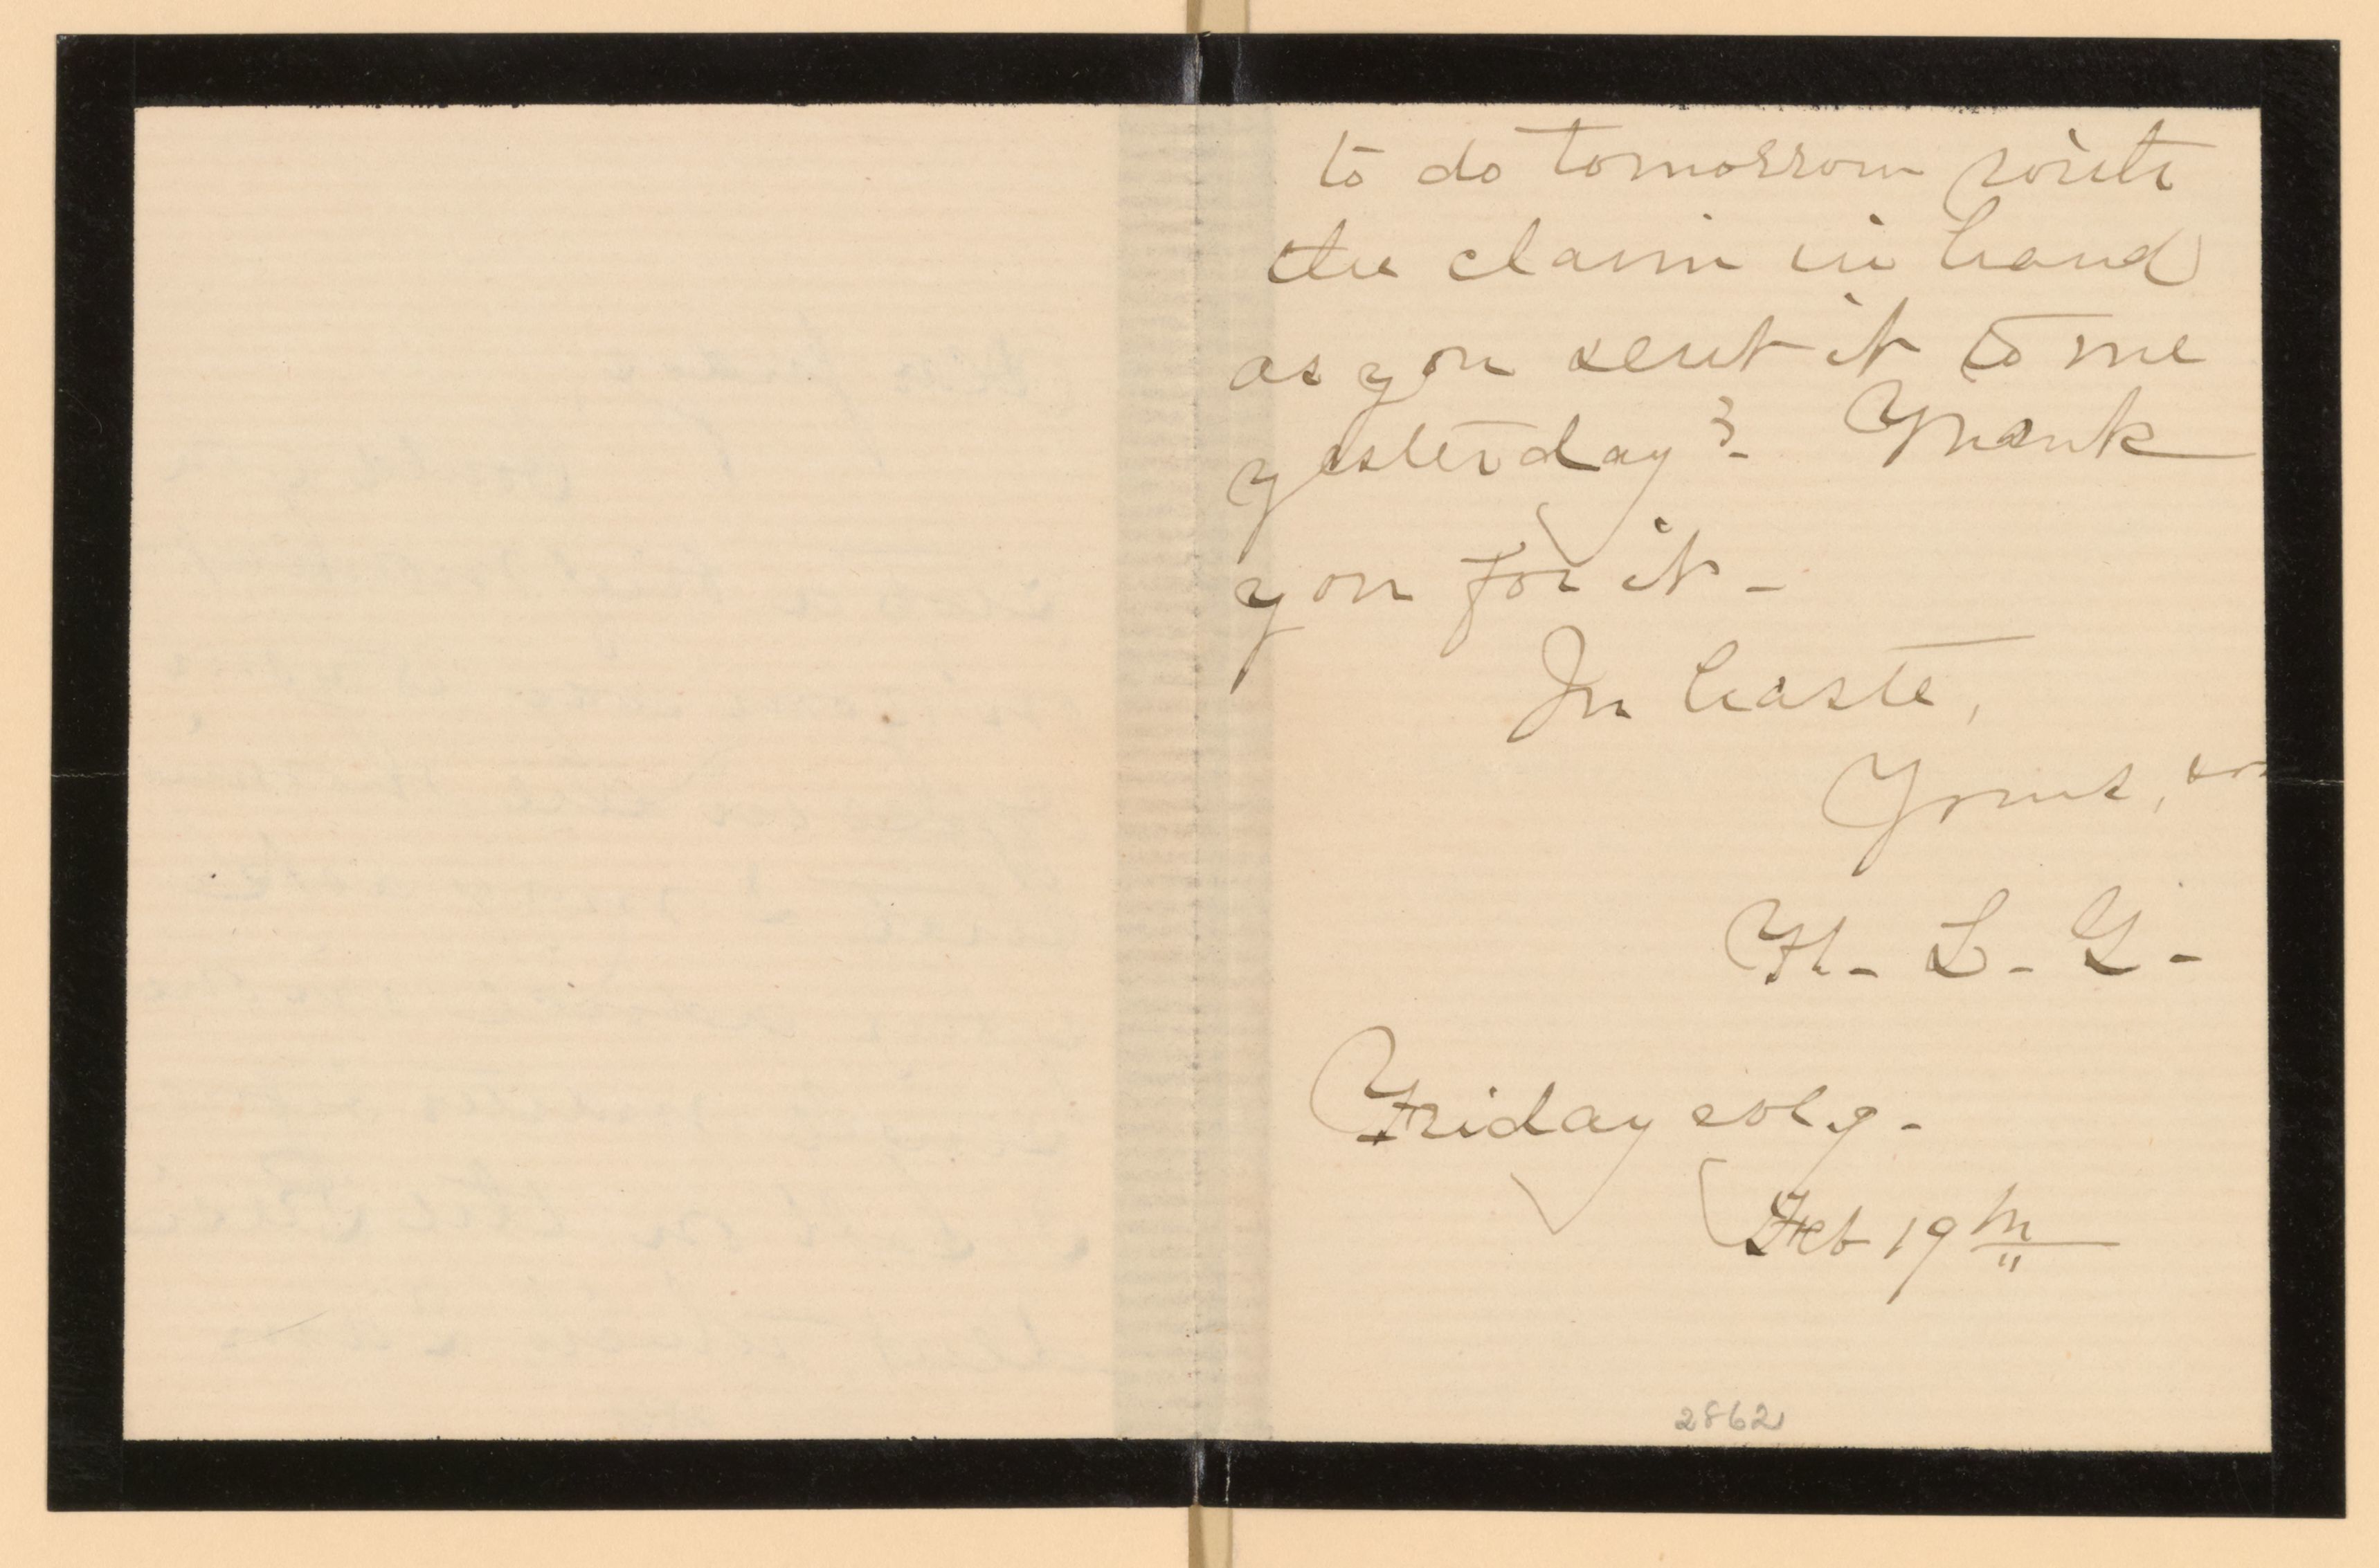 to do tomorrow with
the claim in hand
as you sent it to me
yesterday? - Thank
you for it -
In haste,
Yours,
H. L. G.
Friday evg.
Feb 19th
2862